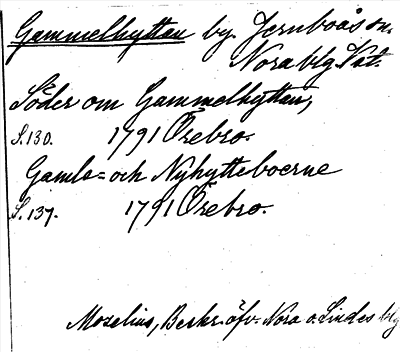 Gammelhyttan by Jernboås sn.
Nora blg. Vst.
Söder om Gammelhyttan,
S.130. 1791 Örebro.
Gamla- och Nyhytteboerne
S.137. 1791 Örebro.
Mozelius, Beskr. öfv. Nora o. Lindes blg